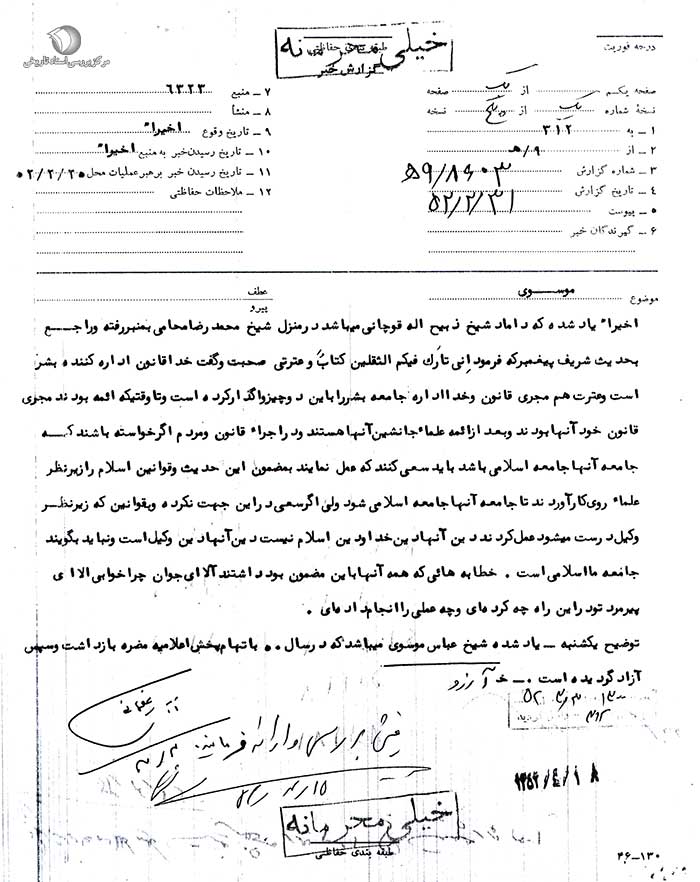 مرکز بررسی اسناد تاریخی
خیلی محرمانه
طبقه بندی حفاظتی
گزارش خبر
درجه فوریت
صفحه یکم از یک صفحه
نسخهٔ شماره یک از پنج نسخه
۱ ـ به ۳۱۲
۲ ـ از ۹/ﻫ
۳ ـ شماره گزارش
۴ ـ تاریخ گزارش ۵۲/۲/۳۱
۵ ـ پیوست
۶ ـ گیرندگان خبر
۷ ـ منبع ۶۳۲۳
۸ ـ منشأ
۹ ـ تاریخ وقوع اخیراً
۱۰ ـ تاریخ رسیدن خبر به منبع اخیراً
۱۱ ـ تاریخ رسیدن خبر به رهبر عملیات محل ۵۲/۲/۲۵
۱۲ ـ ملاحظات حفاظتی
موضوع موسوی
عطف
پیرو
اخیراً یاد شده که داماد شیخ ذبیح اله قوچانی میباشد در منزل شیخ محمد رضا محامی بمنبر رفته و راجع
بحدیث شریف پیغمبر که فرمود انی تارك فیکم الثقلین کتاب و عترتی صحبت و گفت خدا قانون اداره کننده بشر
است و عترت هم مجری قانون و خدا اداره جامعه بشر را باین دو چیز واگذار کرده است و تا وقتیکه ائمه بودند مجری
قانون خود آنها بودند و بعد از ائمه علماء جانشین آنها هستند در اجراء قانون و مردم اگر خواسته باشند که
جامعه آنها جامعه اسلامی باشد باید سعی کنند که عمل نمایند بمضمون این حدیث و قوانین اسلام را زیر نظر
علماء روی کار آورند تا جامعه آنها جامعه اسلامی شود ولی اگر سعی در این جهت نکرده و بقوانین که زیر نظر
وکیل درست میشود عمل کردند دین آنها دین خدا و دین اسلام نیست دین آنها دین وکیل است و نباید بگویند
جامعه ما اسلامی است . خطابه هائی که همه آنها باین مضمون بود داشتند آلا ای جوان چرا خوابی الا ای
پیرمرد تو در این راه چه کرده ای و چه عملی را انجام داده ای .
توضیح یکشنبه ـ یاد شده شیخ عباس موسوی میباشد که در سال ۵۰ باتهام پخش اعلامیه مضره بازداشت و سپس
آزاد گردیده است . ـ خ آرزو
۳۱۲
۱۳۵۲/۴/۱۸
خیلی محرمانه
طبقه بندی حفاظتی
۴۶-۱۳۰